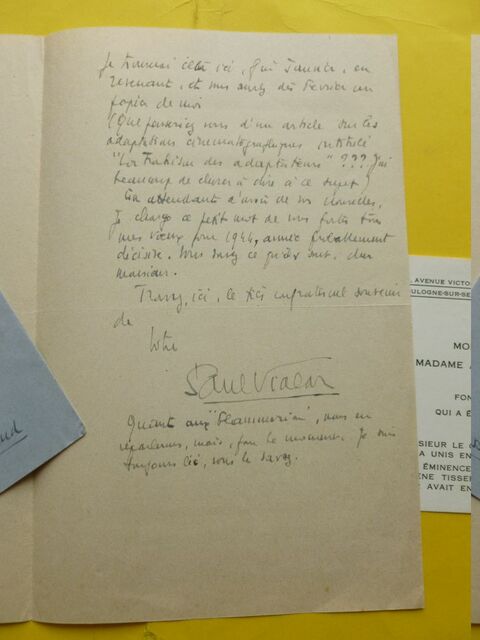 Je trouverai cela ici, fin Janvier, en
revenant, et vous aurez dès Février un
papier de moi
(Que penseriez vous d'un article sur les
adaptations cinématographiques intitulé
"La Trahison des adaptateurs" ??? J'ai
beaucoup de choses à dire à ce sujet)
En attendant d'avoir de vos nouvelles,
Je charge ce petit mot de vous porter tous
mes vœux pour 1944, année probablement
décisive. Vous savez ce qu'ils sont, cher
monsieur.
Trouvez, ici, le très souvenir
de
Votre
Paul Vialar
Quant aux "Flammarion", nous en
reparlerons, mais, pour le moment. Je suis
toujours lié, vous le savez.
AVENUE VICTO
ULOGNE-SUR-SE
MO
MADAME A
FON
QUI A É
SIEUR LE
A UNIS EN
ÉMINENCE
ÈNE TISSER
AVAIT EN